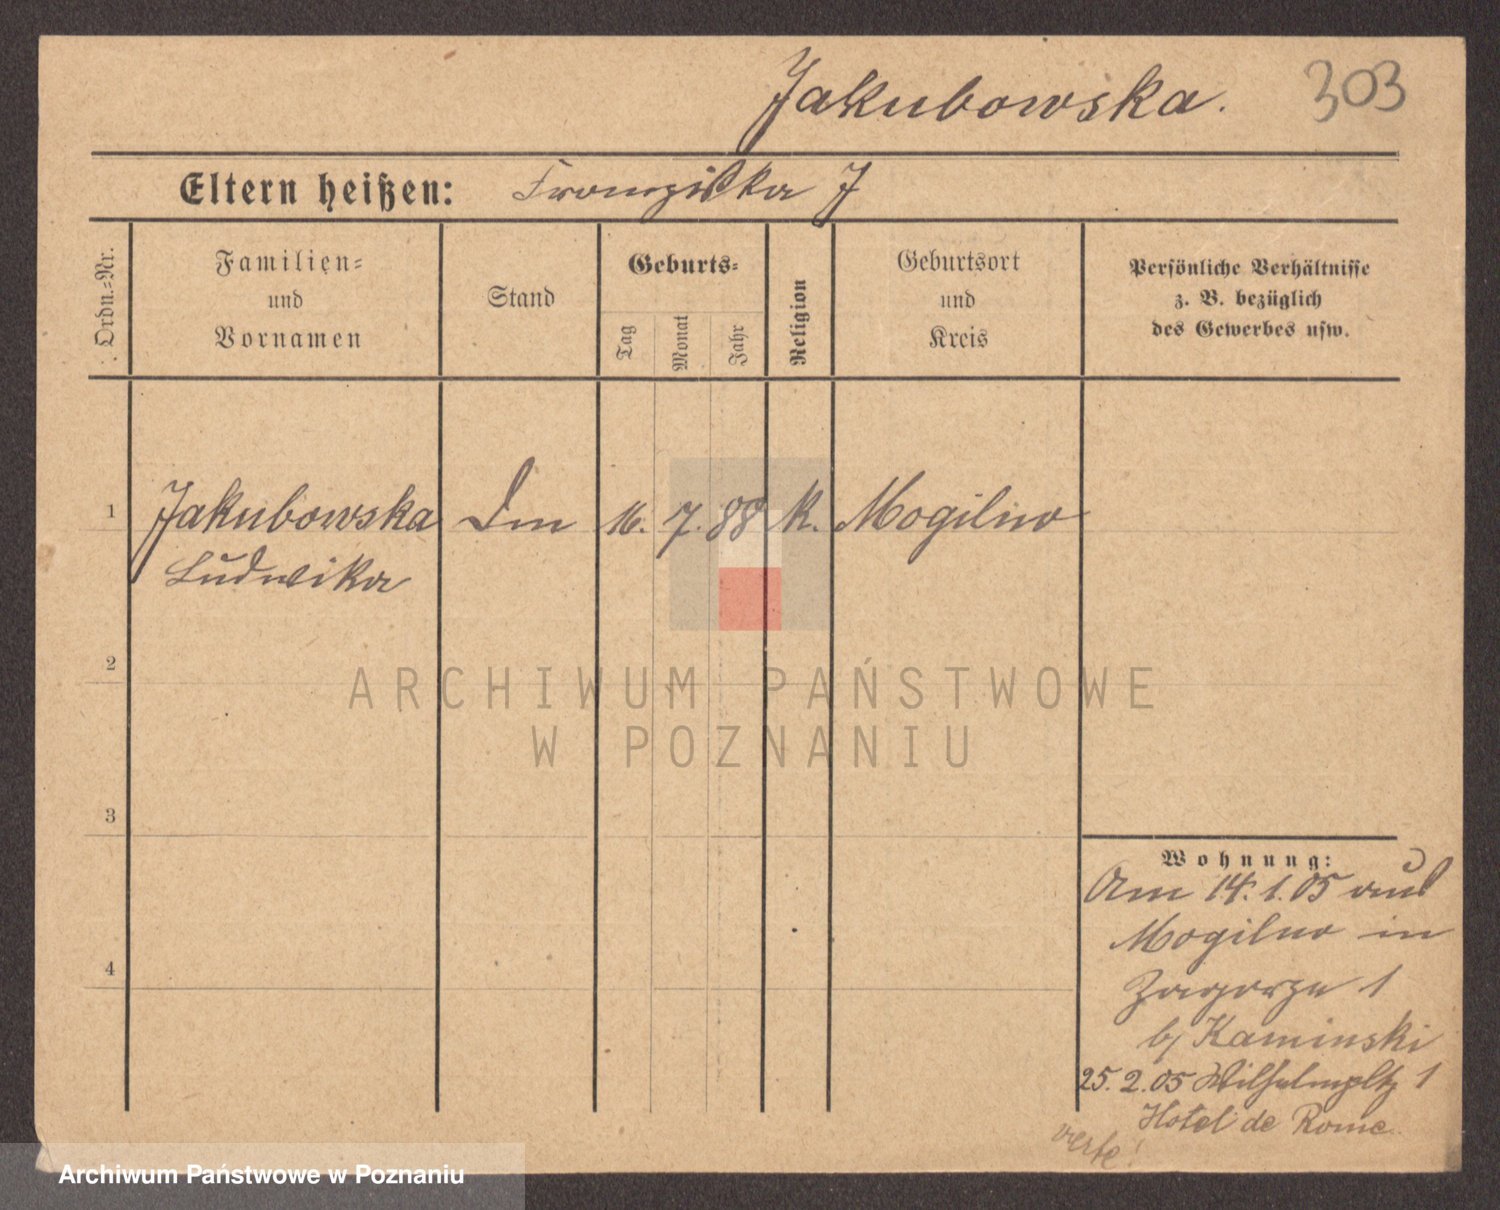 Jakubowska. 303
Eltern heißen: Franziska J
Ordn.-Nr.
Familien-
und
Vornamen
Stand
Geburts-
Tag
Monat
Jahr
Religion
Geburtsort
und
Kreis
Persönliche Verhältnisse
z. B. bezüglich
des Gewerbes usw.
1 Jakubowska 16. 7. 88 k. Mogilno
Ludwika
2
3
4
Wohnung:
Am 14.1.05 aus
Mogilno in
Zagorze 1
b/ Kaminski
25.2.05 Wilhelmpltz 1
Hotel de Rome
verte!
ARCHIWUM PAŃSTWOWE
W POZNANIU
Archiwum Państwowe w Poznaniu